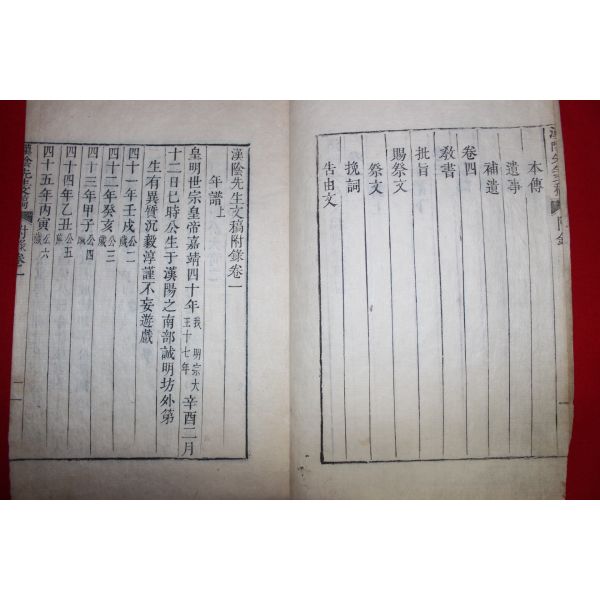 漢陰先生文稿 附錄
本傳
遺事
補遺
卷四
敎書
批旨
賜祭文
祭文
挽詞
告由文
漢陰先生文稿附錄卷一
年譜上
皇明世宗皇帝嘉靖四十年我 明宗大王十七年辛酉二月
十二日巳時公生于漢陽之南部誠明坊外第
生有異質沉毅淳謹不妄遊戲
四十一年壬戌公二歲
四十二年癸亥公三歲
四十三年甲子公四歲
四十四年乙丑公五歲
四十五年丙寅公六歲
漢陰先生文稿 附錄卷一 一